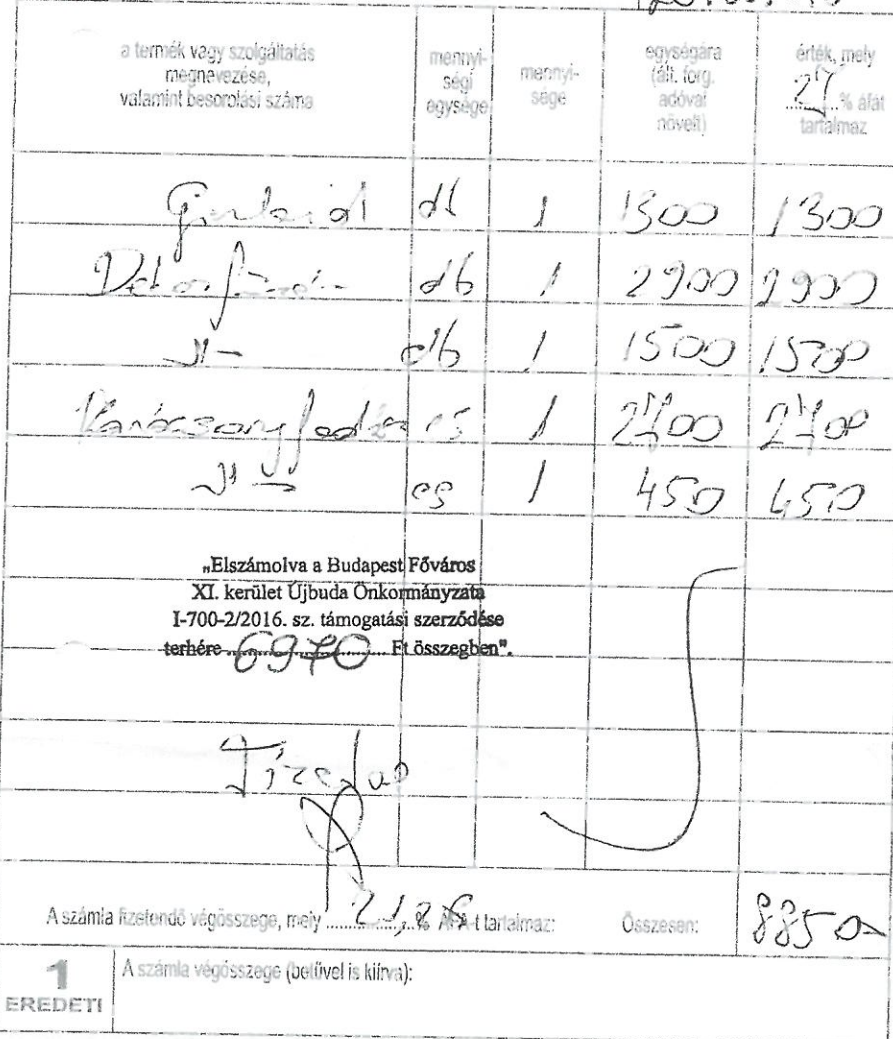 a termék vagy szolgáltatás megnevezése, valamint besorolási száma
mennyiségi egysége
mennyisége
egységára (ált. forg. adóval növelt)
érték, mely 27 % áfát tartalmaz
db 1 1300 1300
db 1 2900 2900
-"- db 1 1500 1500
cs 1 2700 2700
-"- cs 1 450 450
„Elszámolva a Budapest Főváros
XI. kerület Újbuda Önkormányzata
I-700-2/2016. sz. támogatási szerződése
terhére 6970 Ft összegben".
A számla fizetendő végösszege, mely 21,26 % ÁFA-t tartalmaz: Összesen: 8850
1 EREDETI
A számla végösszege (betűvel is kiírva):